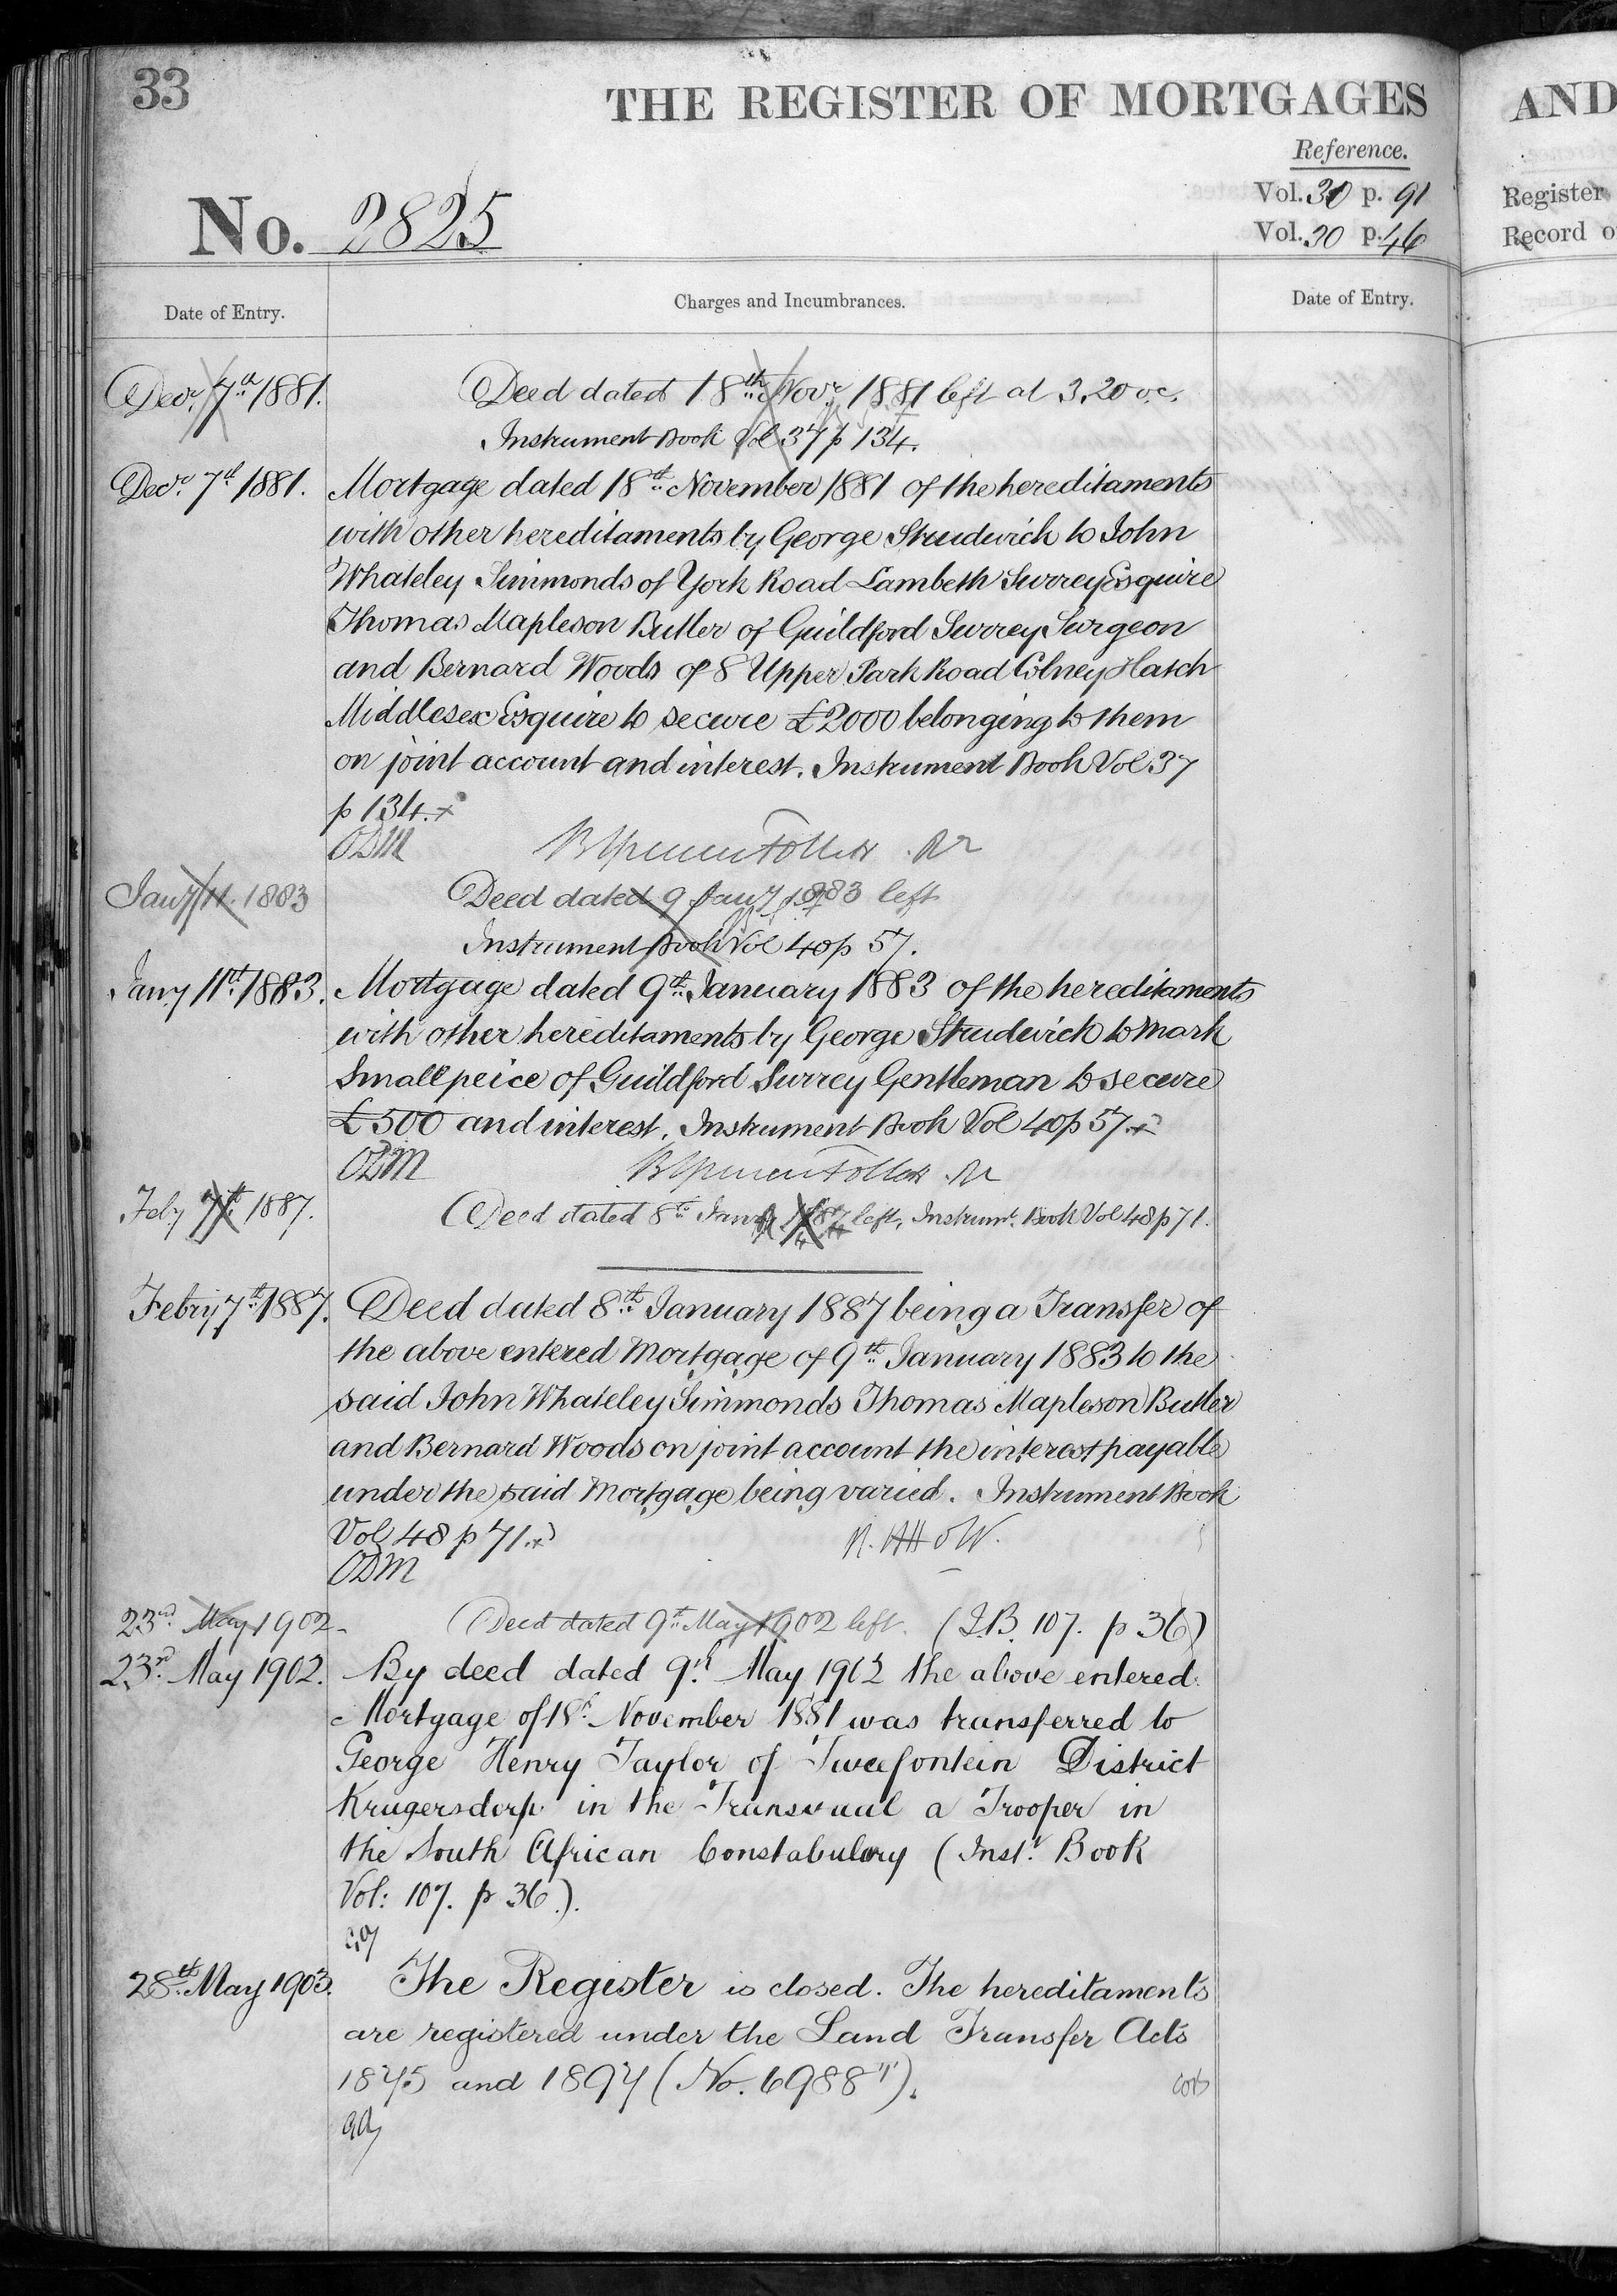 33
THE REGISTER OF MORTGAGES
AND
Reference.
Vol. 30 p. 91
Register
No. 2825
Vol. 30 p. 46
Record o
Date of Entry.
Charges and Incumbrances.
Date of Entry.
Decr. 7th 1881.
Deed dated 18th Novr. 1881 left at 3.20 o.c.
Instrument Book Vol 37 p 134.
Decr. 7th 1881.
Mortgage dated 18th November 1881 of the hereditaments
with other hereditaments by George Strudwick to John
Whateley Simmonds of York Road Lambeth Surrey Esquire
Thomas Mapleson Butler of Guildford Surrey Surgeon
and Bernard Woods of 8 Upper Park Road Colney Hatch
Middlesex Esquire to secure £2000 belonging to them
on joint account and interest. Instrument Book Vol 37
p 134.
ODM
Jany 11. 1883
Deed dated 9 Jany 1883 left
Instrument Book Vol 40 p 57.
Jany 11th 1883.
Mortgage dated 9th January 1883 of the hereditaments
with other hereditaments by George Strudwick to Mark
Smallpeice of Guildford Surrey Gentleman to secure
£500 and interest. Instrument Book Vol 40 p 57.
ODM
Feby 7th 1887.
Deed dated 8th Jany 1887 left, Instrumt. Book Vol 48 p 71.
Febry 7th 1887.
Deed dated 8th January 1887 being a Transfer of
the above entered Mortgage of 9th January 1883 to the
said John Whateley Simmonds Thomas Mapleson Butler
and Bernard Woods on joint account the interest payable
under the said Mortgage being varied. Instrument Book
Vol 48 p 71.
ODM
23rd May 1902.
Deed dated 9th May 1902 left. (I.B. 107. p 36)
23rd May 1902.
By deed dated 9th May 1902 the above entered
Mortgage of 18th November 1881 was transferred to
George Henry Taylor of Tweefontein District
Krugersdorp in the Transvaal a Trooper in
the South African Constabulary (Inst. Book
Vol: 107. p 36).
28th May 1903.
The Register is closed. The hereditaments
are registered under the Land Transfer Acts
1875 and 1897 (No. 6988).